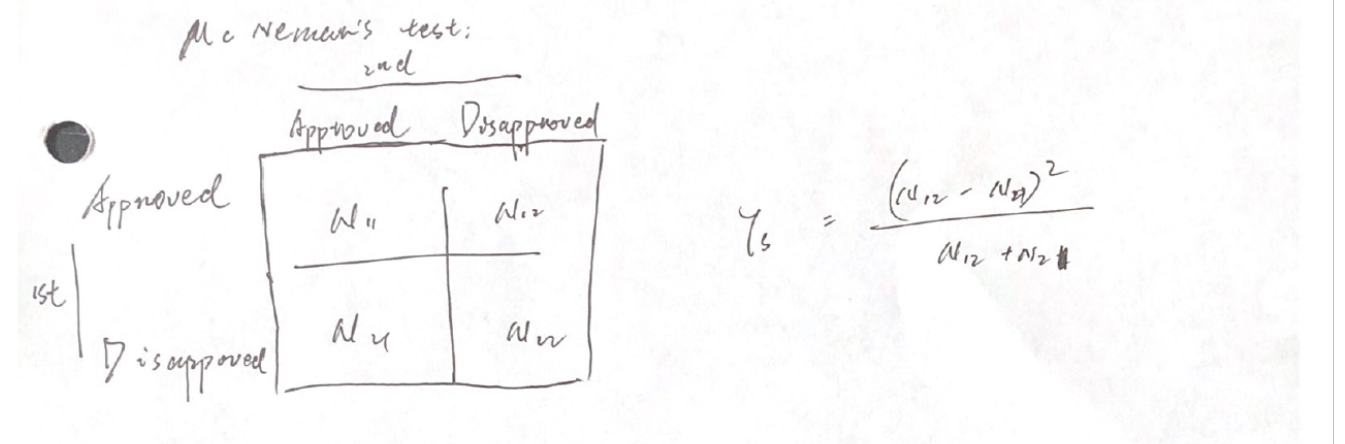 McNemar's test:
2nd
Approved Disapproved
Approved N11 N12
1st
Disapproved N21 N22
χs = (N12 - N21)²
N12 + N21